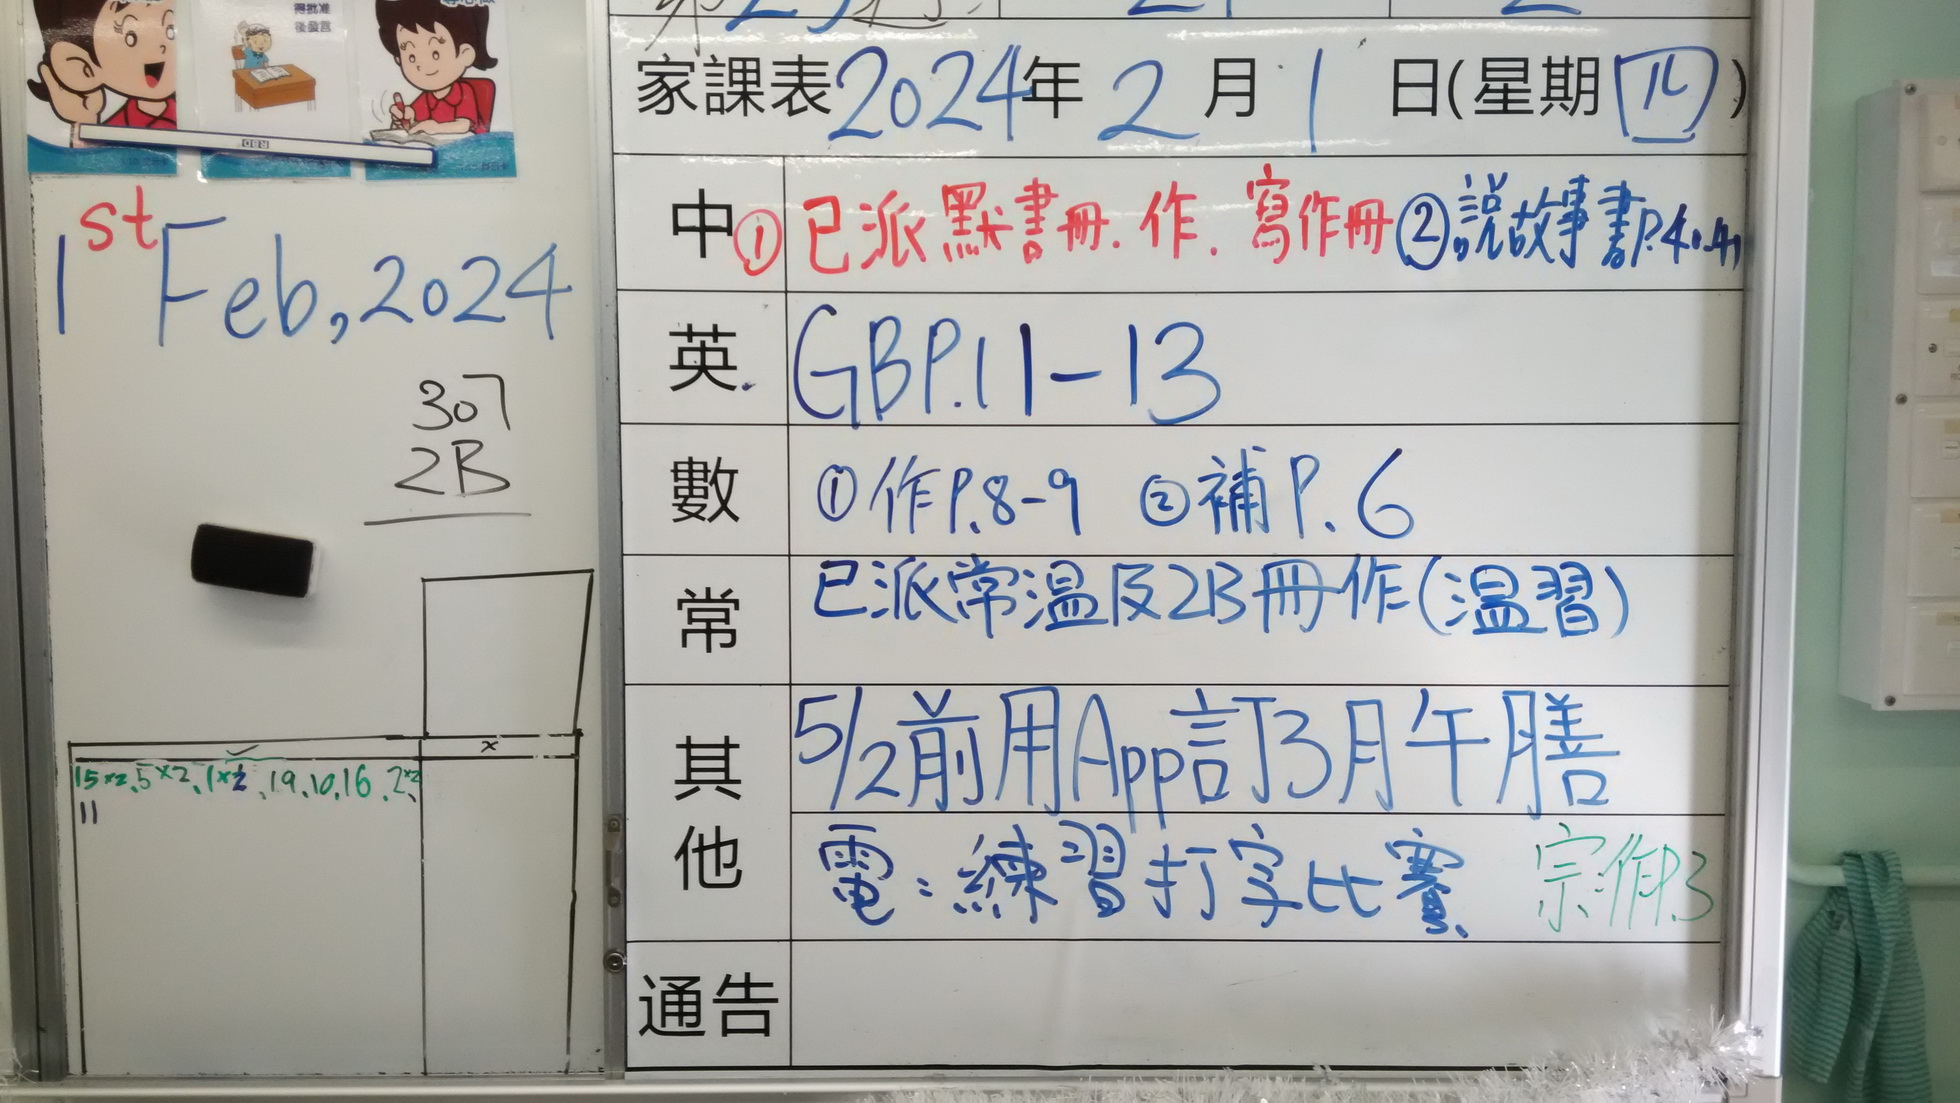 得批准
後發言
家課表2024年2月1日(星期四)
中 ①已派默書冊.作.寫作冊②說故事書P.40-41
英 GBP.11-13
數 ①作P.8-9 ②補P.6
常 已派常溫及2B冊作(溫習)
其他 5/2前用App訂3月午膳
電:練習打字比賽、 宗:作P.3
通告
1st Feb,2024
307
2B
✓ x
15x2、5x2、1x2、19、10、16、2x2、
11